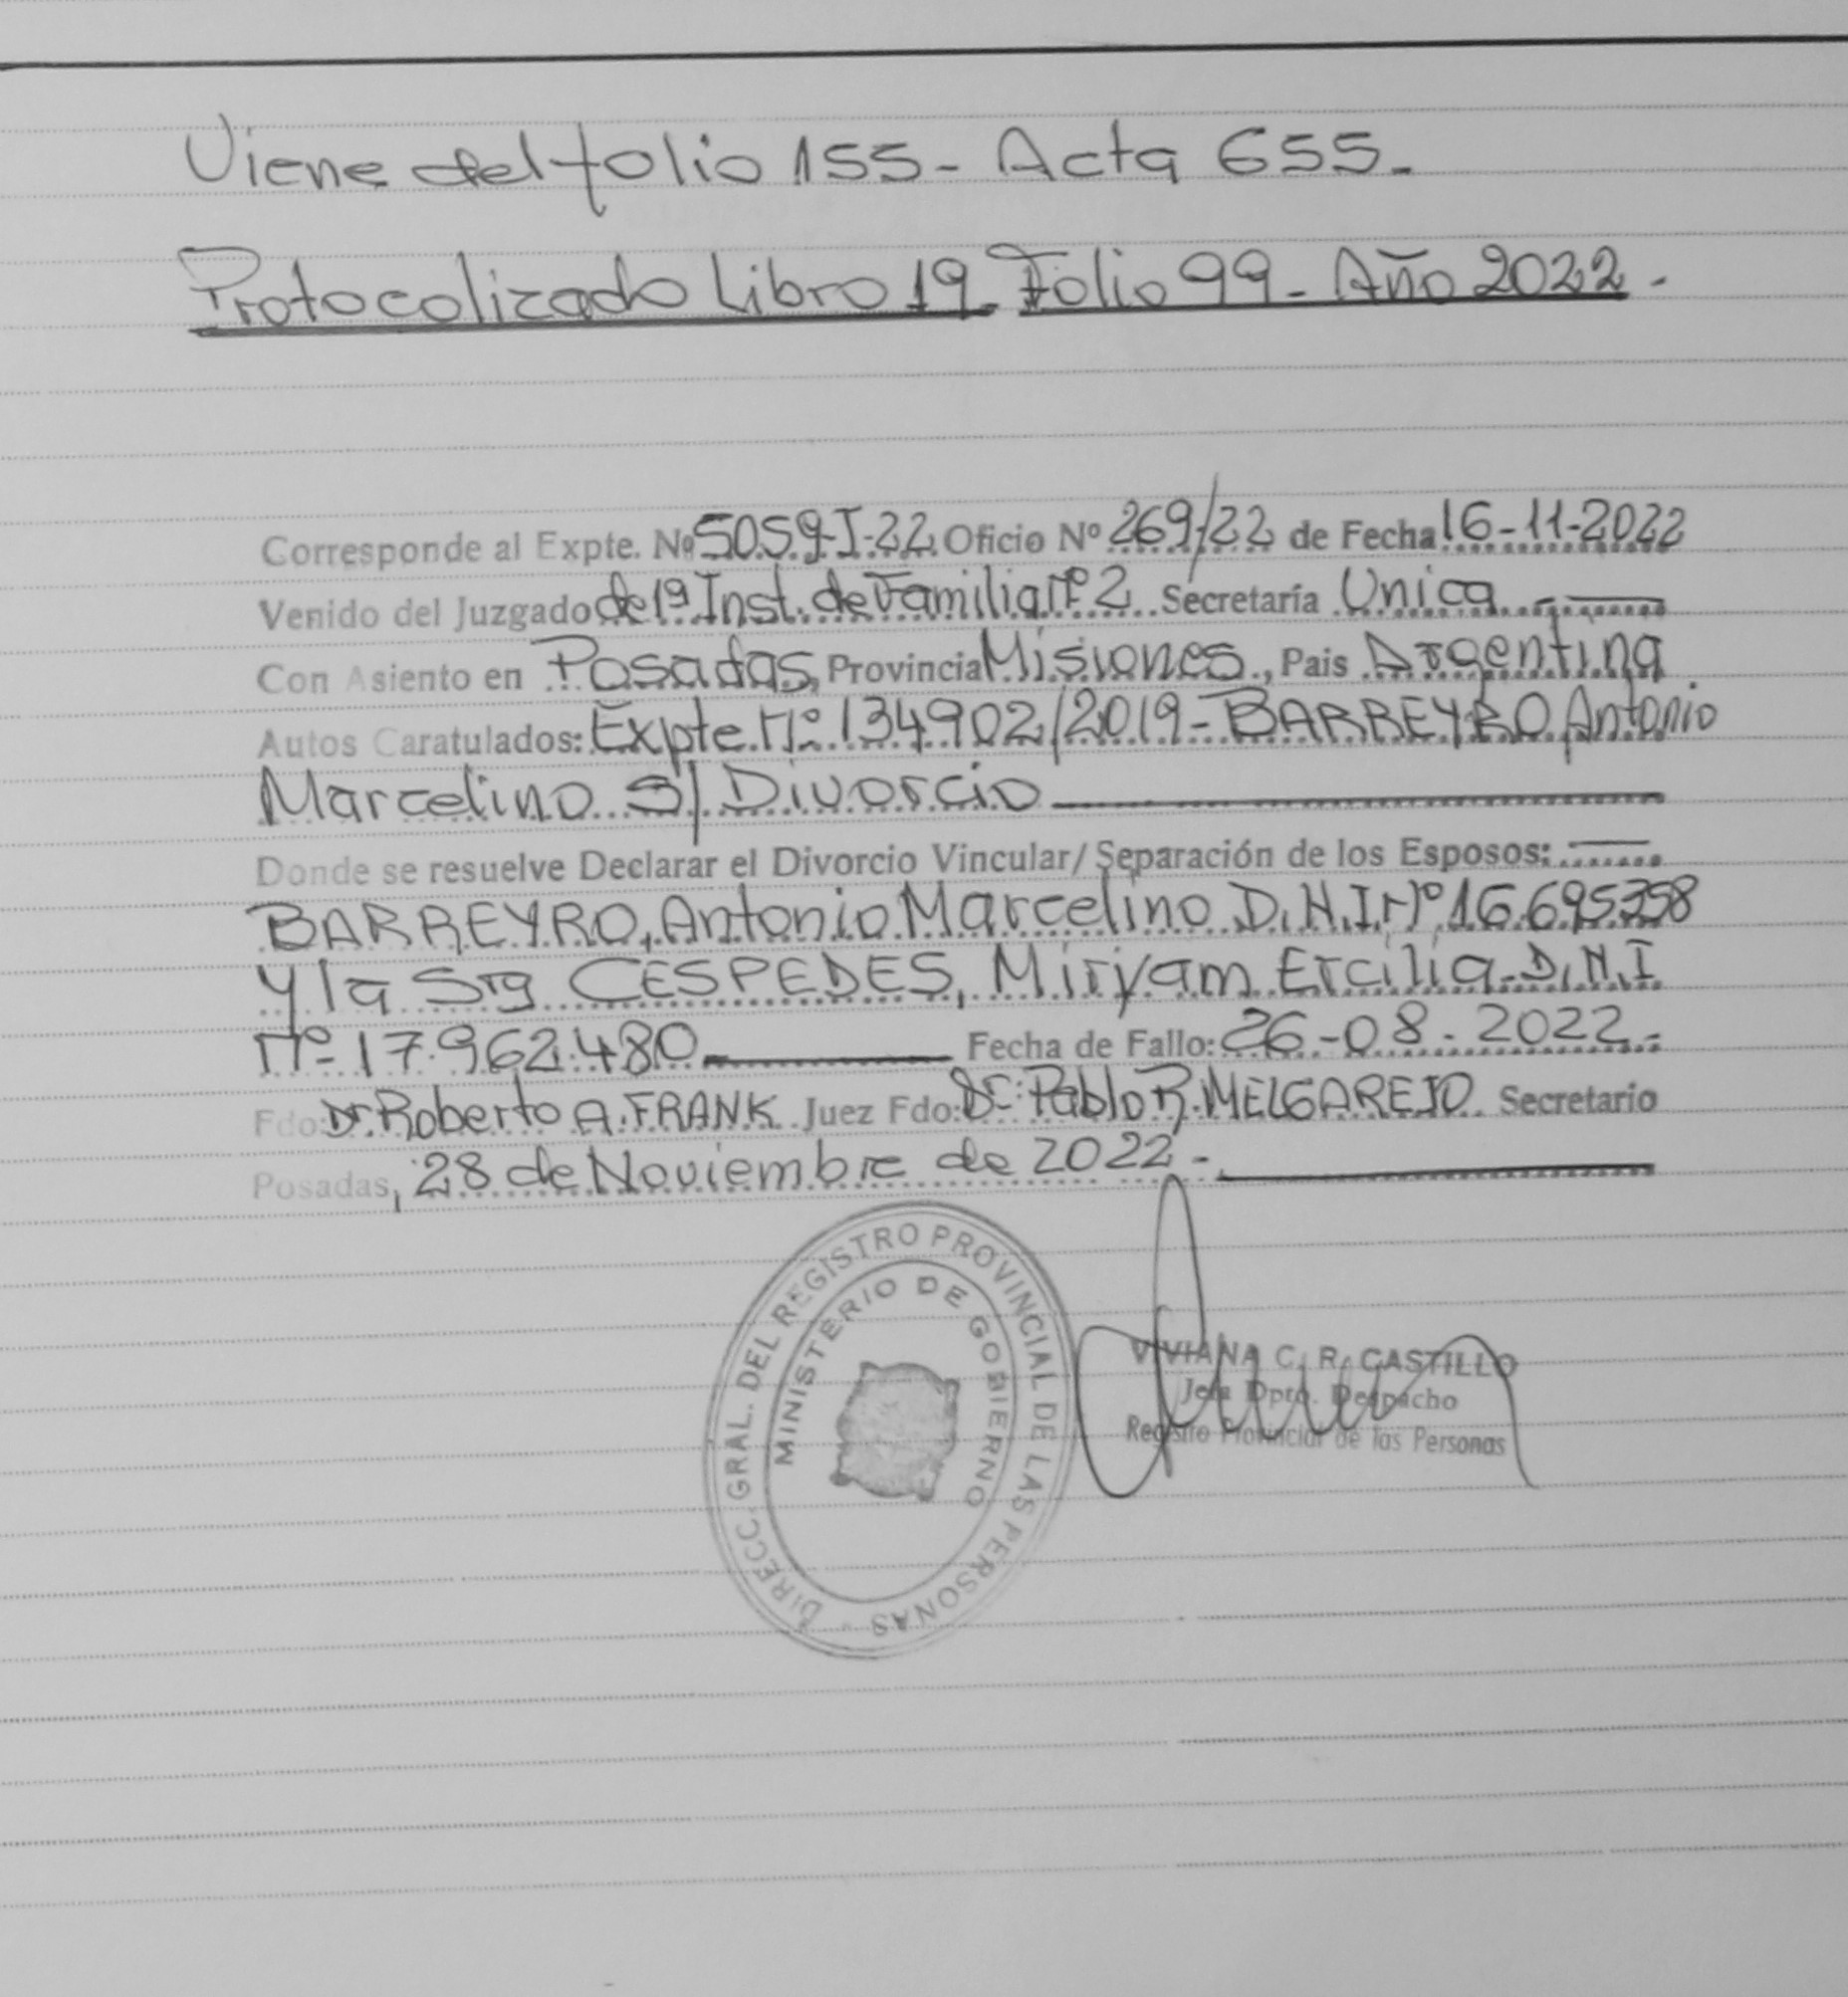 Viene del folio 155- Acta 655.-
Protocolizado Libro 19- Folio 99- Año 2022.-
Corresponde al Expte. Nº 5059-I-22 Oficio Nº 269/22 de Fecha 16-11-2022
Venido del Juzgado de 1ª Inst. de Familia Nº 2 Secretaría Unica
Con Asiento en Posadas, Provincia Misiones, Pais Argentina
Autos Caratulados: Expte. Nº 134902/2019- BARREYRO, Antonio
Marcelino S/ Divorcio
Donde se resuelve Declarar el Divorcio Vincular/ Separación de los Esposos:
BARREYRO, Antonio Marcelino D.N.I Nº 16.695358
y la Sra CESPEDES, Miryam Ercilia. D.N.I
Nº 17.962.480 Fecha de Fallo: 26-08-2022.-
Fdo: Dr. Roberto A. FRANK Juez Fdo: Dr. Pablo R. MELGAREJO Secretario
Posadas, 28 de Noviembre de 2022-.
DIRECC. GRAL. DEL REGISTRO PROVINCIAL DE LAS PERSONAS -
MINISTERIO DE GOBIERNO
VIVIANA C. R. CASTILLO
Jefa Dpto. Despacho
Registro Provincial de las Personas